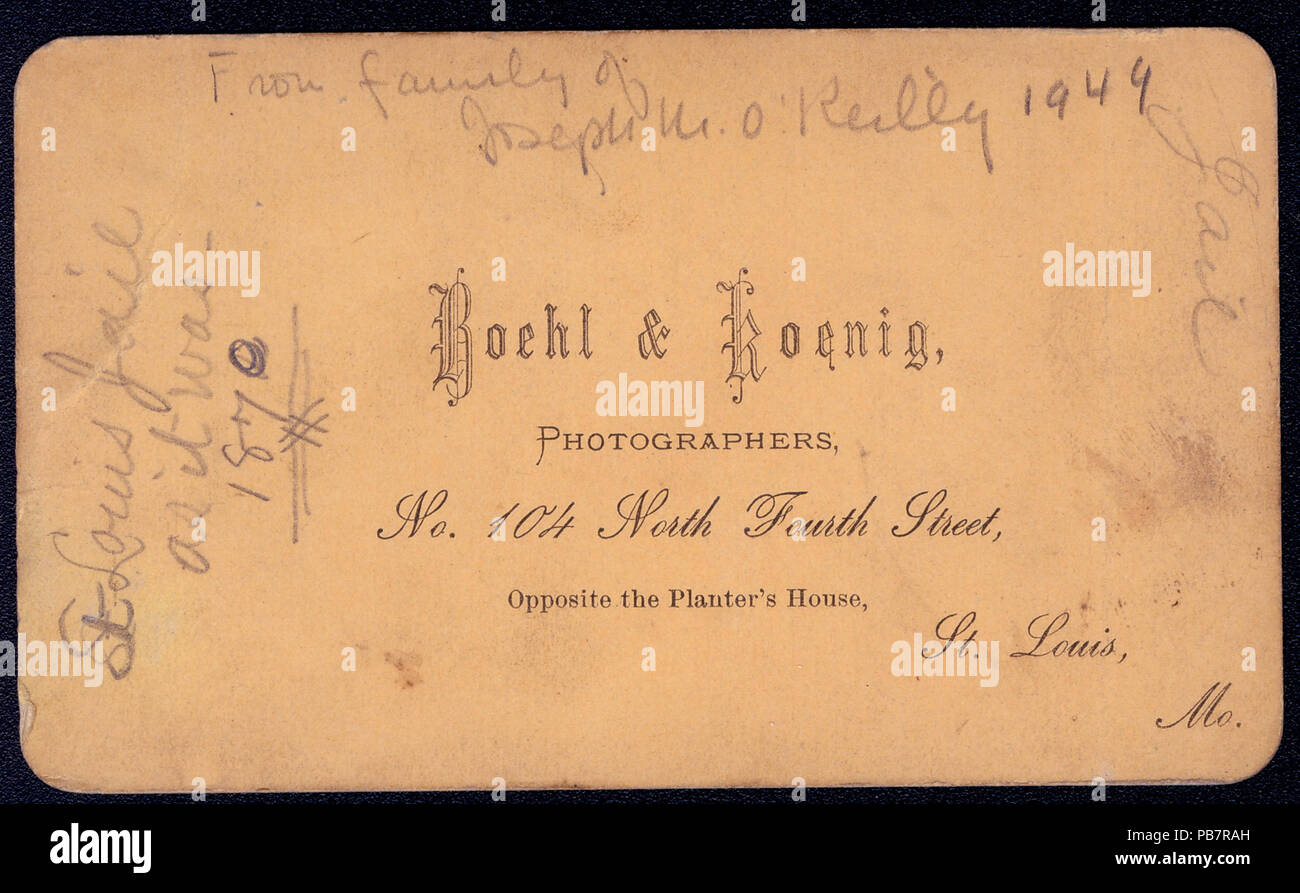 From family of
Joseph M. O'Reilly 1944
Jail
St Louis Jail
as it was
1870
Boehl & Koenig,
PHOTOGRAPHERS,
No. 104 North Fourth Street,
Opposite the Planter's House,
St. Louis,
Mo.
alamy
Image ID: PB7RAH
www.alamy.com